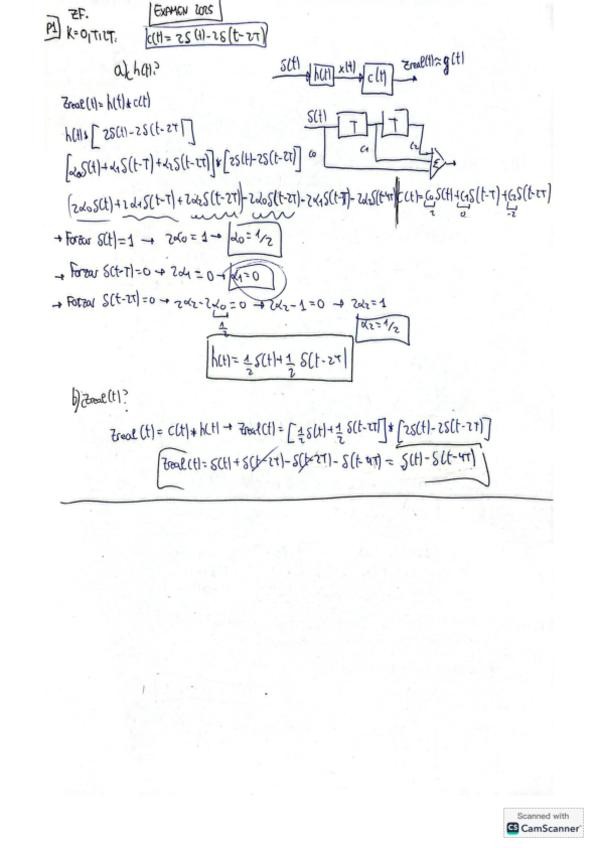 ZF.
EXAMEN 2025
P1
K=0,T,2T.
c(t) = 2δ(t)-2δ(t-2T)
a) h(t)?
δ(t) h(t) x(t) c(t) zreal(t)≈g(t)
zreal(t)=h(t)*c(t)
δ(t) T T
c0 c1 c2 Σ
h(t)*[2δ(t)-2δ(t-2T)]
[α0δ(t)+α1δ(t-T)+α2δ(t-2T)]*[2δ(t)-2δ(t-2T)]
(2α0δ(t)+2α1δ(t-T)+2α2δ(t-2T))-2α0δ(t-2T)-2α1δ(t-3T)-2α2δ(t-4T)
c(t)=c0δ(t)+c1δ(t-T)+c2δ(t-2T)
2 0 -2
→ Forzar δ(t)=1 → 2α0=1 → α0=1/2
→ Forzar δ(t-T)=0 → 2α1=0 → α1=0
→ Forzar δ(t-2T)=0 → 2α2-2α0=0 → 2α2-1=0 → 2α2=1
1/2
α2=1/2
h(t)=1/2 δ(t)+1/2 δ(t-2T)
b) zreal(t)?
zreal(t)=c(t)*h(t) → zreal(t)=[1/2 δ(t)+1/2 δ(t-2T)]*[2δ(t)-2δ(t-2T)]
zreal(t)=δ(t)+δ(t-2T)-δ(t-2T)-δ(t-4T) = δ(t)-δ(t-4T)
Scanned with
CS CamScanner